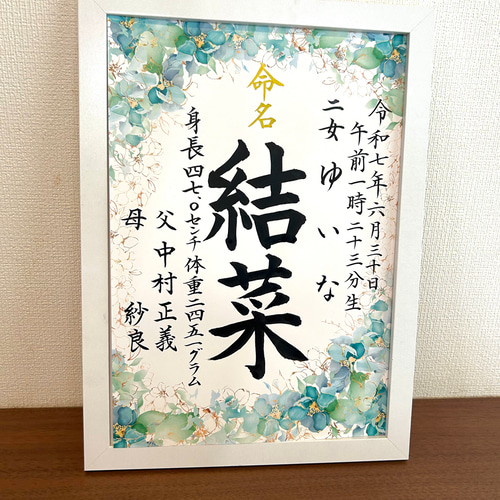 令和七年六月三十日
午前一時二十三分生
二女ゆいな
命名
結菜
身長四七、〇センチ体重二四五一グラム
父中村正義
母紗良